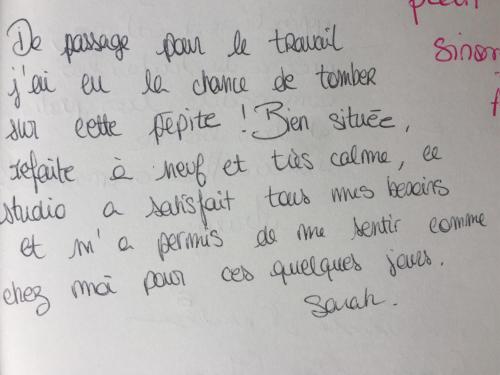 De passage pour le travail
j'ai eu la chance de tomber
sur cette pépite ! Bien située,
refaite à neuf et très calme, ce
studio a satisfait tous mes besoins
et m'a permis de me sentir comme
chez moi pour ces quelques jours.
Sarah.
sinon